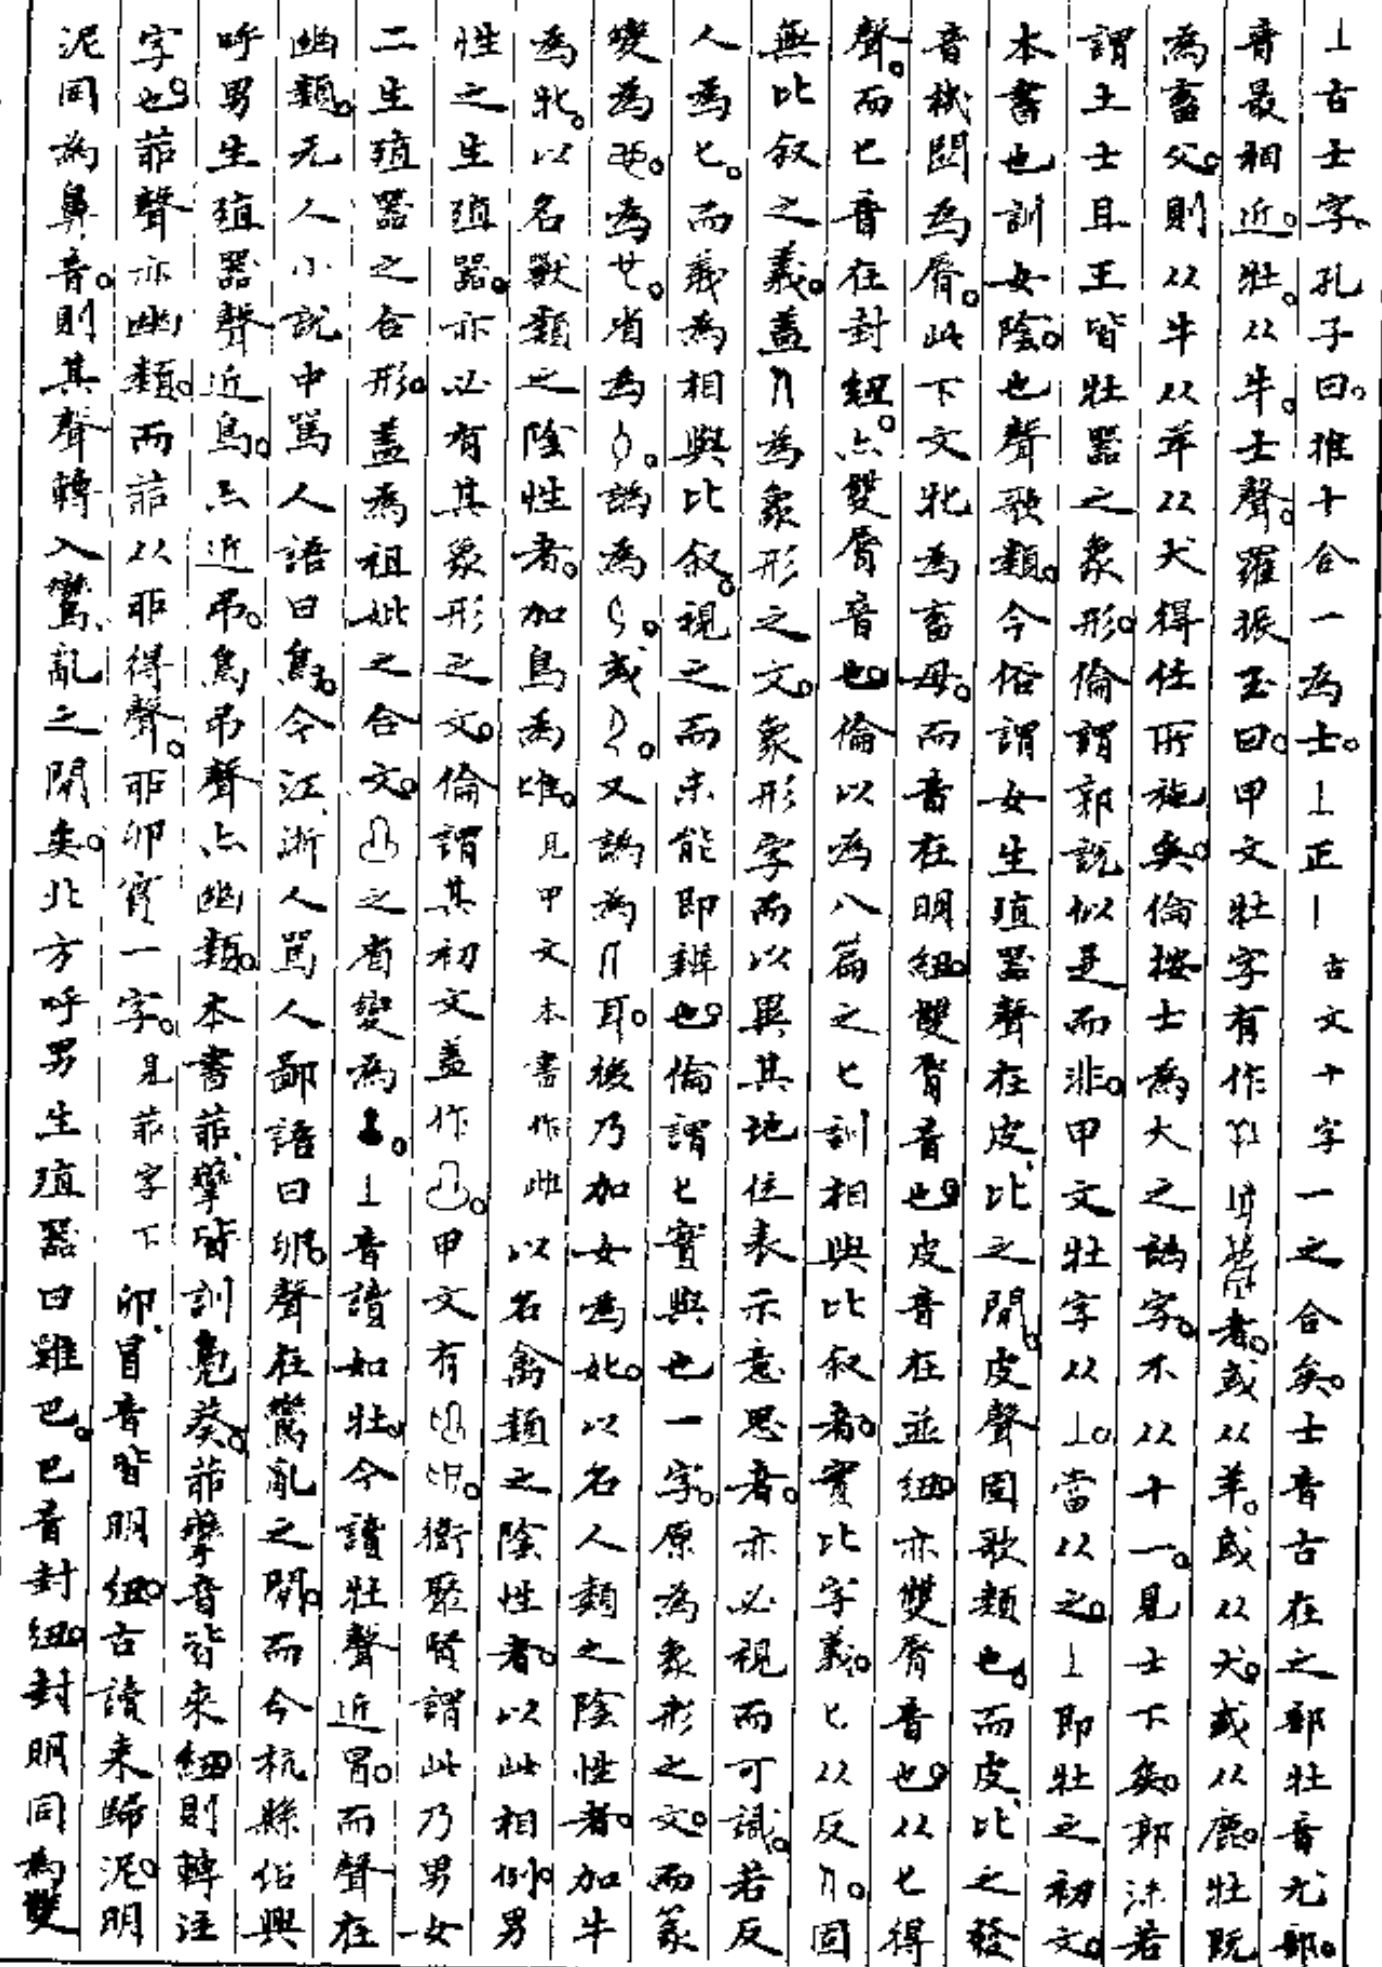 ⊥古士字孔子曰。推十合一為士。⊥正｜古文十字一之合矣。士音古在之部牡音尤部。
音最相近。牡。从牛。士聲。羅振玉曰。甲文牡字有作者。或从羊。或从犬。或从鹿。牡既
為畜父。則从牛从羊从犬得任所施矣。倫按士為大之譌字。不从十一。見士下矣。郭沫若
謂土士且王皆牡器之象形。倫謂郭說似是而非。甲文牡字从⊥。當从之。⊥即牡之初文。
本書也訓女陰。也聲歌類。今俗謂女生殖器聲在皮、比之間。皮聲固歌類也。而皮、比之發
音機關為脣。此下文牝為畜母。而音在明紐。雙脣音也。皮音在並紐。亦雙脣音也。从匕得
聲。而匕音在封紐。亦雙脣音也。倫以為八篇之匕訓相與比叙者。實比字義。匕从反。固
無比叙之義。蓋為象形之文。象形字而以異其地位表示意思者。亦必視而可識。若反
人為匕。而義為相與比叙。視之而未能即辨也。倫謂匕實與也一字。原為象形之文。而篆
變為。為廿。省為。譌為。或。又譌為耳。後乃加女為妣。以名人類之陰性者。加牛
為牝。以名獸類之陰性者。加鳥為𨾱。見甲文本書作雌以名禽類之陰性者。以此相例。男
性之生殖器。亦必有其象形之文。倫謂其初文蓋作。甲文有。衞聚賢謂此乃男女
二生殖器之合形。蓋為祖妣之合文。之省變為。⊥音讀如牡。今讀牡聲近冒。而聲在
幽類。元人小說中罵人語曰鳥。今江、浙人罵人鄙語曰。聲在鸞亂之間。而今杭縣俗興
呼男生殖器聲近鳥。亦近弔。鳥弔聲亦幽類。本書茆、孿皆訓鳧葵。茆孿音皆來紐則轉注
字也。茆聲亦幽類。而茆以丣得聲。丣卯實一字。見茆字下卯、冒音皆明紐。古讀來歸泥。明
泥同為鼻音。則其聲轉入鸞、亂之間矣。北方呼男生殖器曰雞巴。巴音封紐。封明同為雙